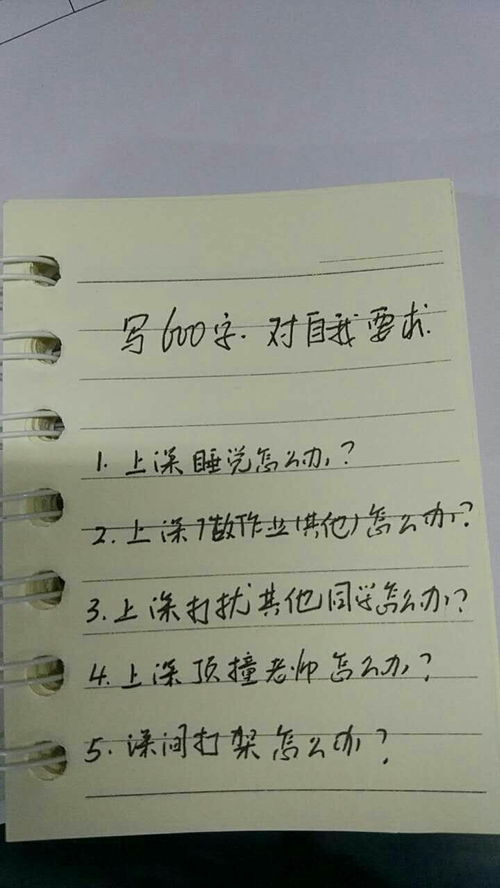 写600字.对自我要求.
1.上课睡觉怎么办?
2.上课做作业(其他)怎么办?
3.上课打扰其他同学怎么办?
4.上课顶撞老师怎么办?
5.课间打架怎么办?